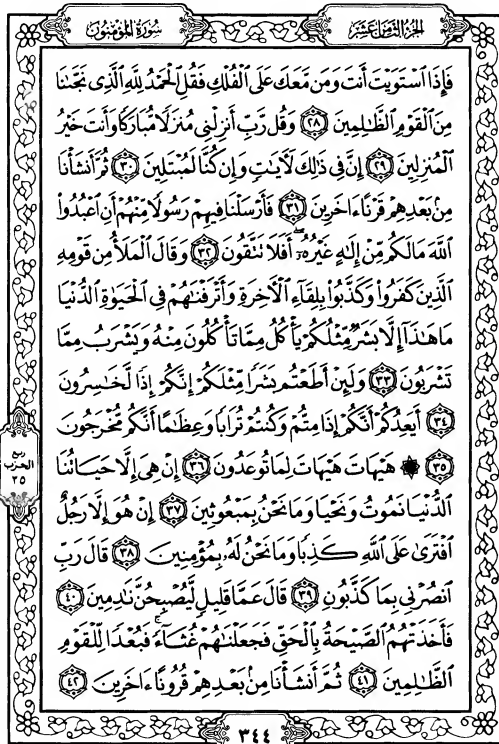 الجزء الثامن عشر
سورة المؤمنون
فَإِذَا ٱسْتَوَيْتَ أَنتَ وَمَن مَّعَكَ عَلَى ٱلْفُلْكِ فَقُلِ ٱلْحَمْدُ لِلَّهِ ٱلَّذِى نَجَّىٰنَا
مِنَ ٱلْقَوْمِ ٱلظَّٰلِمِينَ ٢٨ وَقُل رَّبِّ أَنزِلْنِى مُنزَلًا مُّبَارَكًا وَأَنتَ خَيْرُ
ٱلْمُنزِلِينَ ٢٩ إِنَّ فِى ذَٰلِكَ لَءَايَٰتٍ وَإِن كُنَّا لَمُبْتَلِينَ ٣٠ ثُمَّ أَنشَأْنَا
مِنۢ بَعْدِهِمْ قَرْنًا ءَاخَرِينَ ٣١ فَأَرْسَلْنَا فِيهِمْ رَسُولًا مِّنْهُمْ أَنِ ٱعْبُدُوا۟
ٱللَّهَ مَا لَكُم مِّنْ إِلَٰهٍ غَيْرُهُۥٓ أَفَلَا تَتَّقُونَ ٣٢ وَقَالَ ٱلْمَلَأُ مِن قَوْمِهِ
ٱلَّذِينَ كَفَرُوا۟ وَكَذَّبُوا۟ بِلِقَآءِ ٱلْءَاخِرَةِ وَأَتْرَفْنَٰهُمْ فِى ٱلْحَيَوٰةِ ٱلدُّنْيَا
مَا هَٰذَآ إِلَّا بَشَرٌ مِّثْلُكُمْ يَأْكُلُ مِمَّا تَأْكُلُونَ مِنْهُ وَيَشْرَبُ مِمَّا
تَشْرَبُونَ ٣٣ وَلَئِنْ أَطَعْتُم بَشَرًا مِّثْلَكُمْ إِنَّكُمْ إِذًا لَّخَٰسِرُونَ
٣٤ أَيَعِدُكُمْ أَنَّكُمْ إِذَا مِتُّمْ وَكُنتُمْ تُرَابًا وَعِظَٰمًا أَنَّكُم مُّخْرَجُونَ
٣٥ ۞ هَيْهَاتَ هَيْهَاتَ لِمَا تُوعَدُونَ ٣٦ إِنْ هِىَ إِلَّا حَيَاتُنَا
ٱلدُّنْيَا نَمُوتُ وَنَحْيَا وَمَا نَحْنُ بِمَبْعُوثِينَ ٣٧ إِنْ هُوَ إِلَّا رَجُلٌ
ٱفْتَرَىٰ عَلَى ٱللَّهِ كَذِبًا وَمَا نَحْنُ لَهُۥ بِمُؤْمِنِينَ ٣٨ قَالَ رَبِّ
ٱنصُرْنِى بِمَا كَذَّبُونِ ٣٩ قَالَ عَمَّا قَلِيلٍ لَّيُصْبِحُنَّ نَٰدِمِينَ ٤٠
فَأَخَذَتْهُمُ ٱلصَّيْحَةُ بِٱلْحَقِّ فَجَعَلْنَٰهُمْ غُثَآءً فَبُعْدًا لِّلْقَوْمِ
ٱلظَّٰلِمِينَ ٤١ ثُمَّ أَنشَأْنَا مِنۢ بَعْدِهِمْ قُرُونًا ءَاخَرِينَ ٤٢
ربع
الحزب
٣٥
٣٤٤